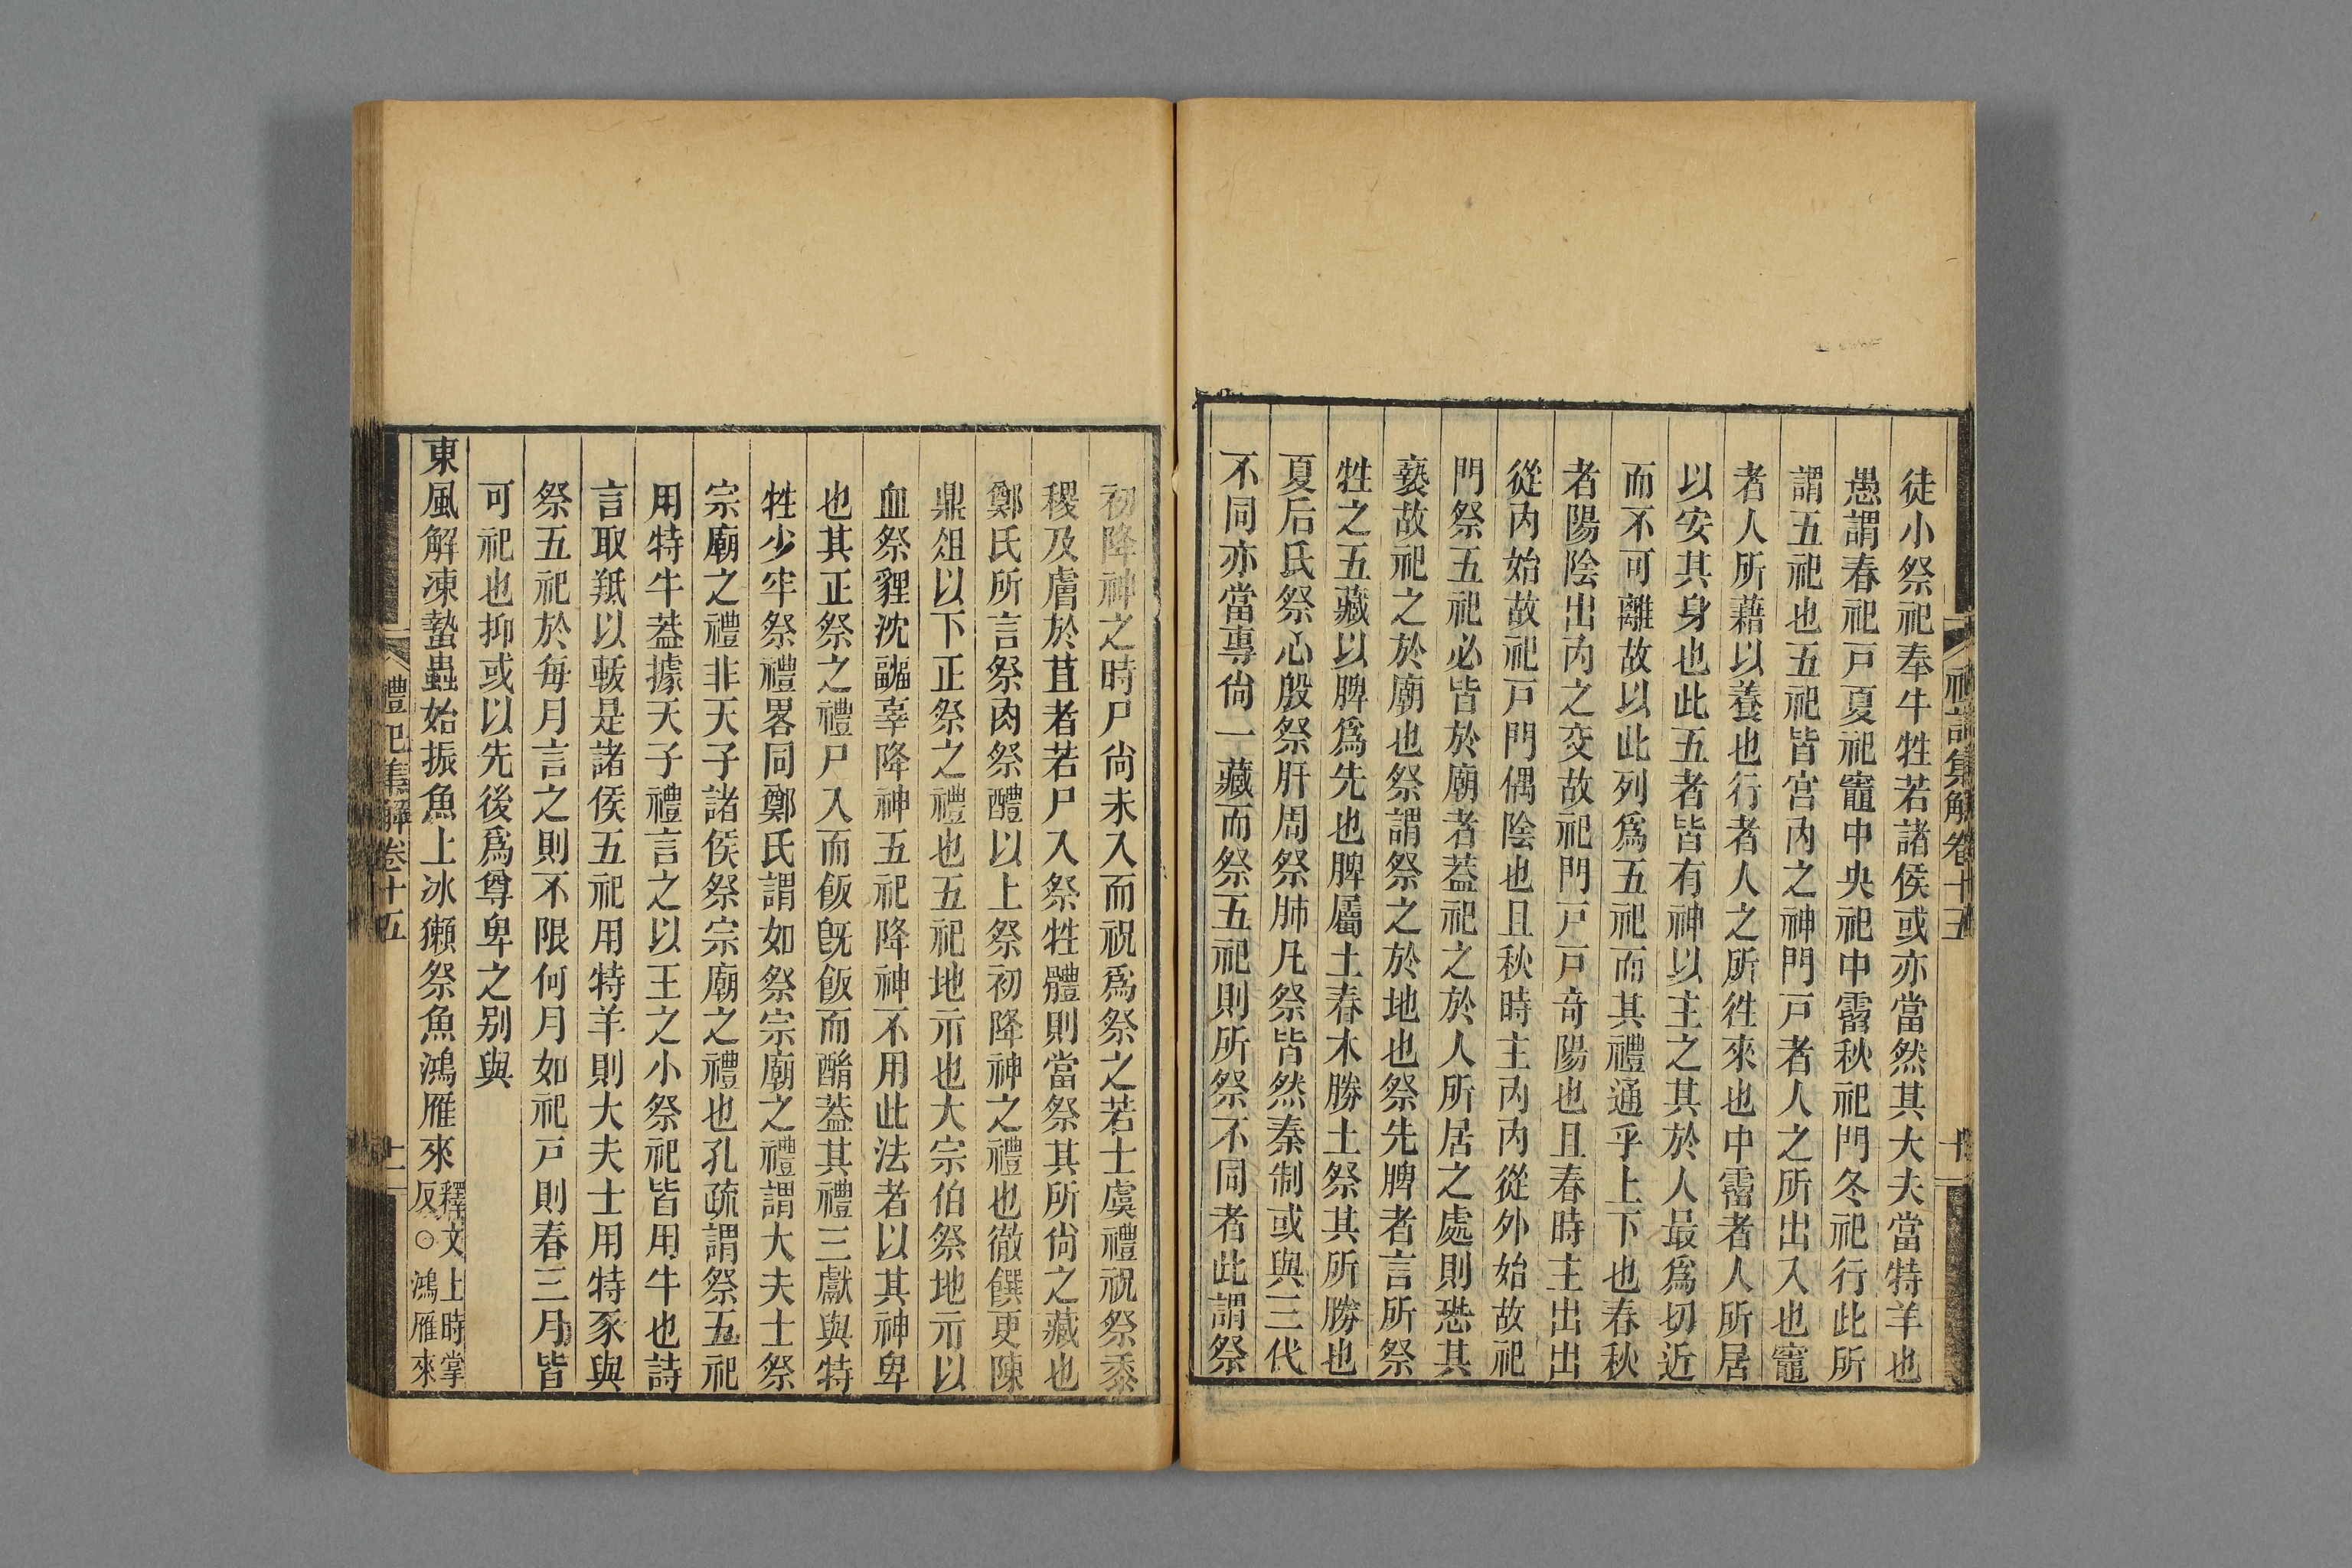 禮記集解卷十五
十
徒小祭祀奉牛牲若諸侯或亦當然其大夫當特羊也
愚謂春祀戸夏祀竈中央祀中霤秋祀門冬祀行此所
謂五祀也五祀皆宮內之神門戸者人之所出入也竈
者人所藉以養也行者人之所徃來也中霤者人所居
以安其身也此五者皆有神以主之其於人最爲切近
而不可離故以此列爲五祀而其禮通乎上下也春秋
者陽陰出內之交故祀門戸戸奇陽也且春時主出出
從內始故祀戸門偶陰也且秋時主內內從外始故祀
門祭五祀必皆於廟者葢祀之於人所居之處則恐其
褻故祀之於廟也祭謂祭之於地也祭先脾者言所祭
牲之五藏以脾爲先也脾屬土春木勝土祭其所勝也
夏后氏祭心殷祭肝周祭肺凡祭皆然秦制或與三代
不同亦當專尙一藏而祭五祀則所祭不同者此謂祭
初降神之時尸尙未入而祝爲祭之若士虞禮祝祭黍
稷及膚於苴者若尸入祭牲體則當祭其所尙之藏也
鄭氏所言祭肉祭醴以上祭初降神之禮也徹饌更陳
鼎俎以下正祭之禮也五祀地示也大宗伯祭地示以
血祭貍沈疈辜降神五祀降神不用此法者以其神卑
也其正祭之禮尸入而飯旣飯而酳葢其禮三獻與特
牲少牢祭禮畧同鄭氏謂如祭宗廟之禮謂大夫士祭
宗廟之禮非天子諸侯祭宗廟之禮也孔疏謂祭五祀
用特牛葢據天子禮言之以王之小祭祀皆用牛也詩
言取羝以軷是諸侯五祀用特羊則大夫士用特豕與
祭五祀於每月言之則不限何月如祀戸則春三月皆
可祀也抑或以先後爲尊卑之別與
東風解凍蟄蟲始振魚上冰獺祭魚鴻雁來釋文上時掌反○鴻雁來
禮記集解卷十五
十一